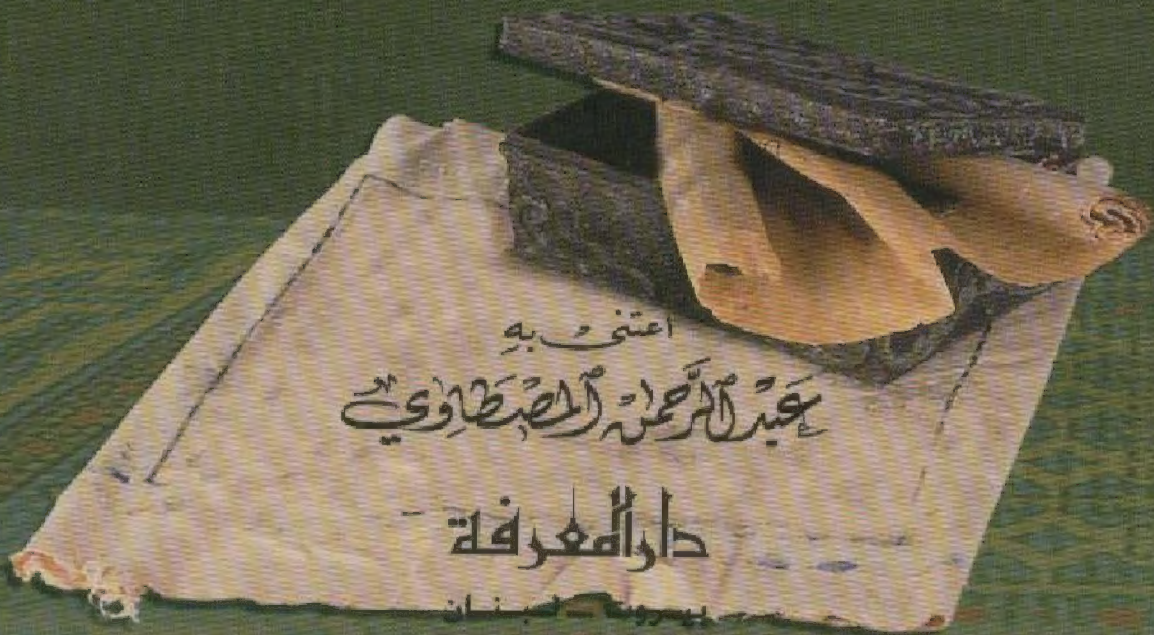 اعتنى به
عَبْد الرَّحمٰن المصْطَاوِي
دار المعرفة
بيروت - لبنان